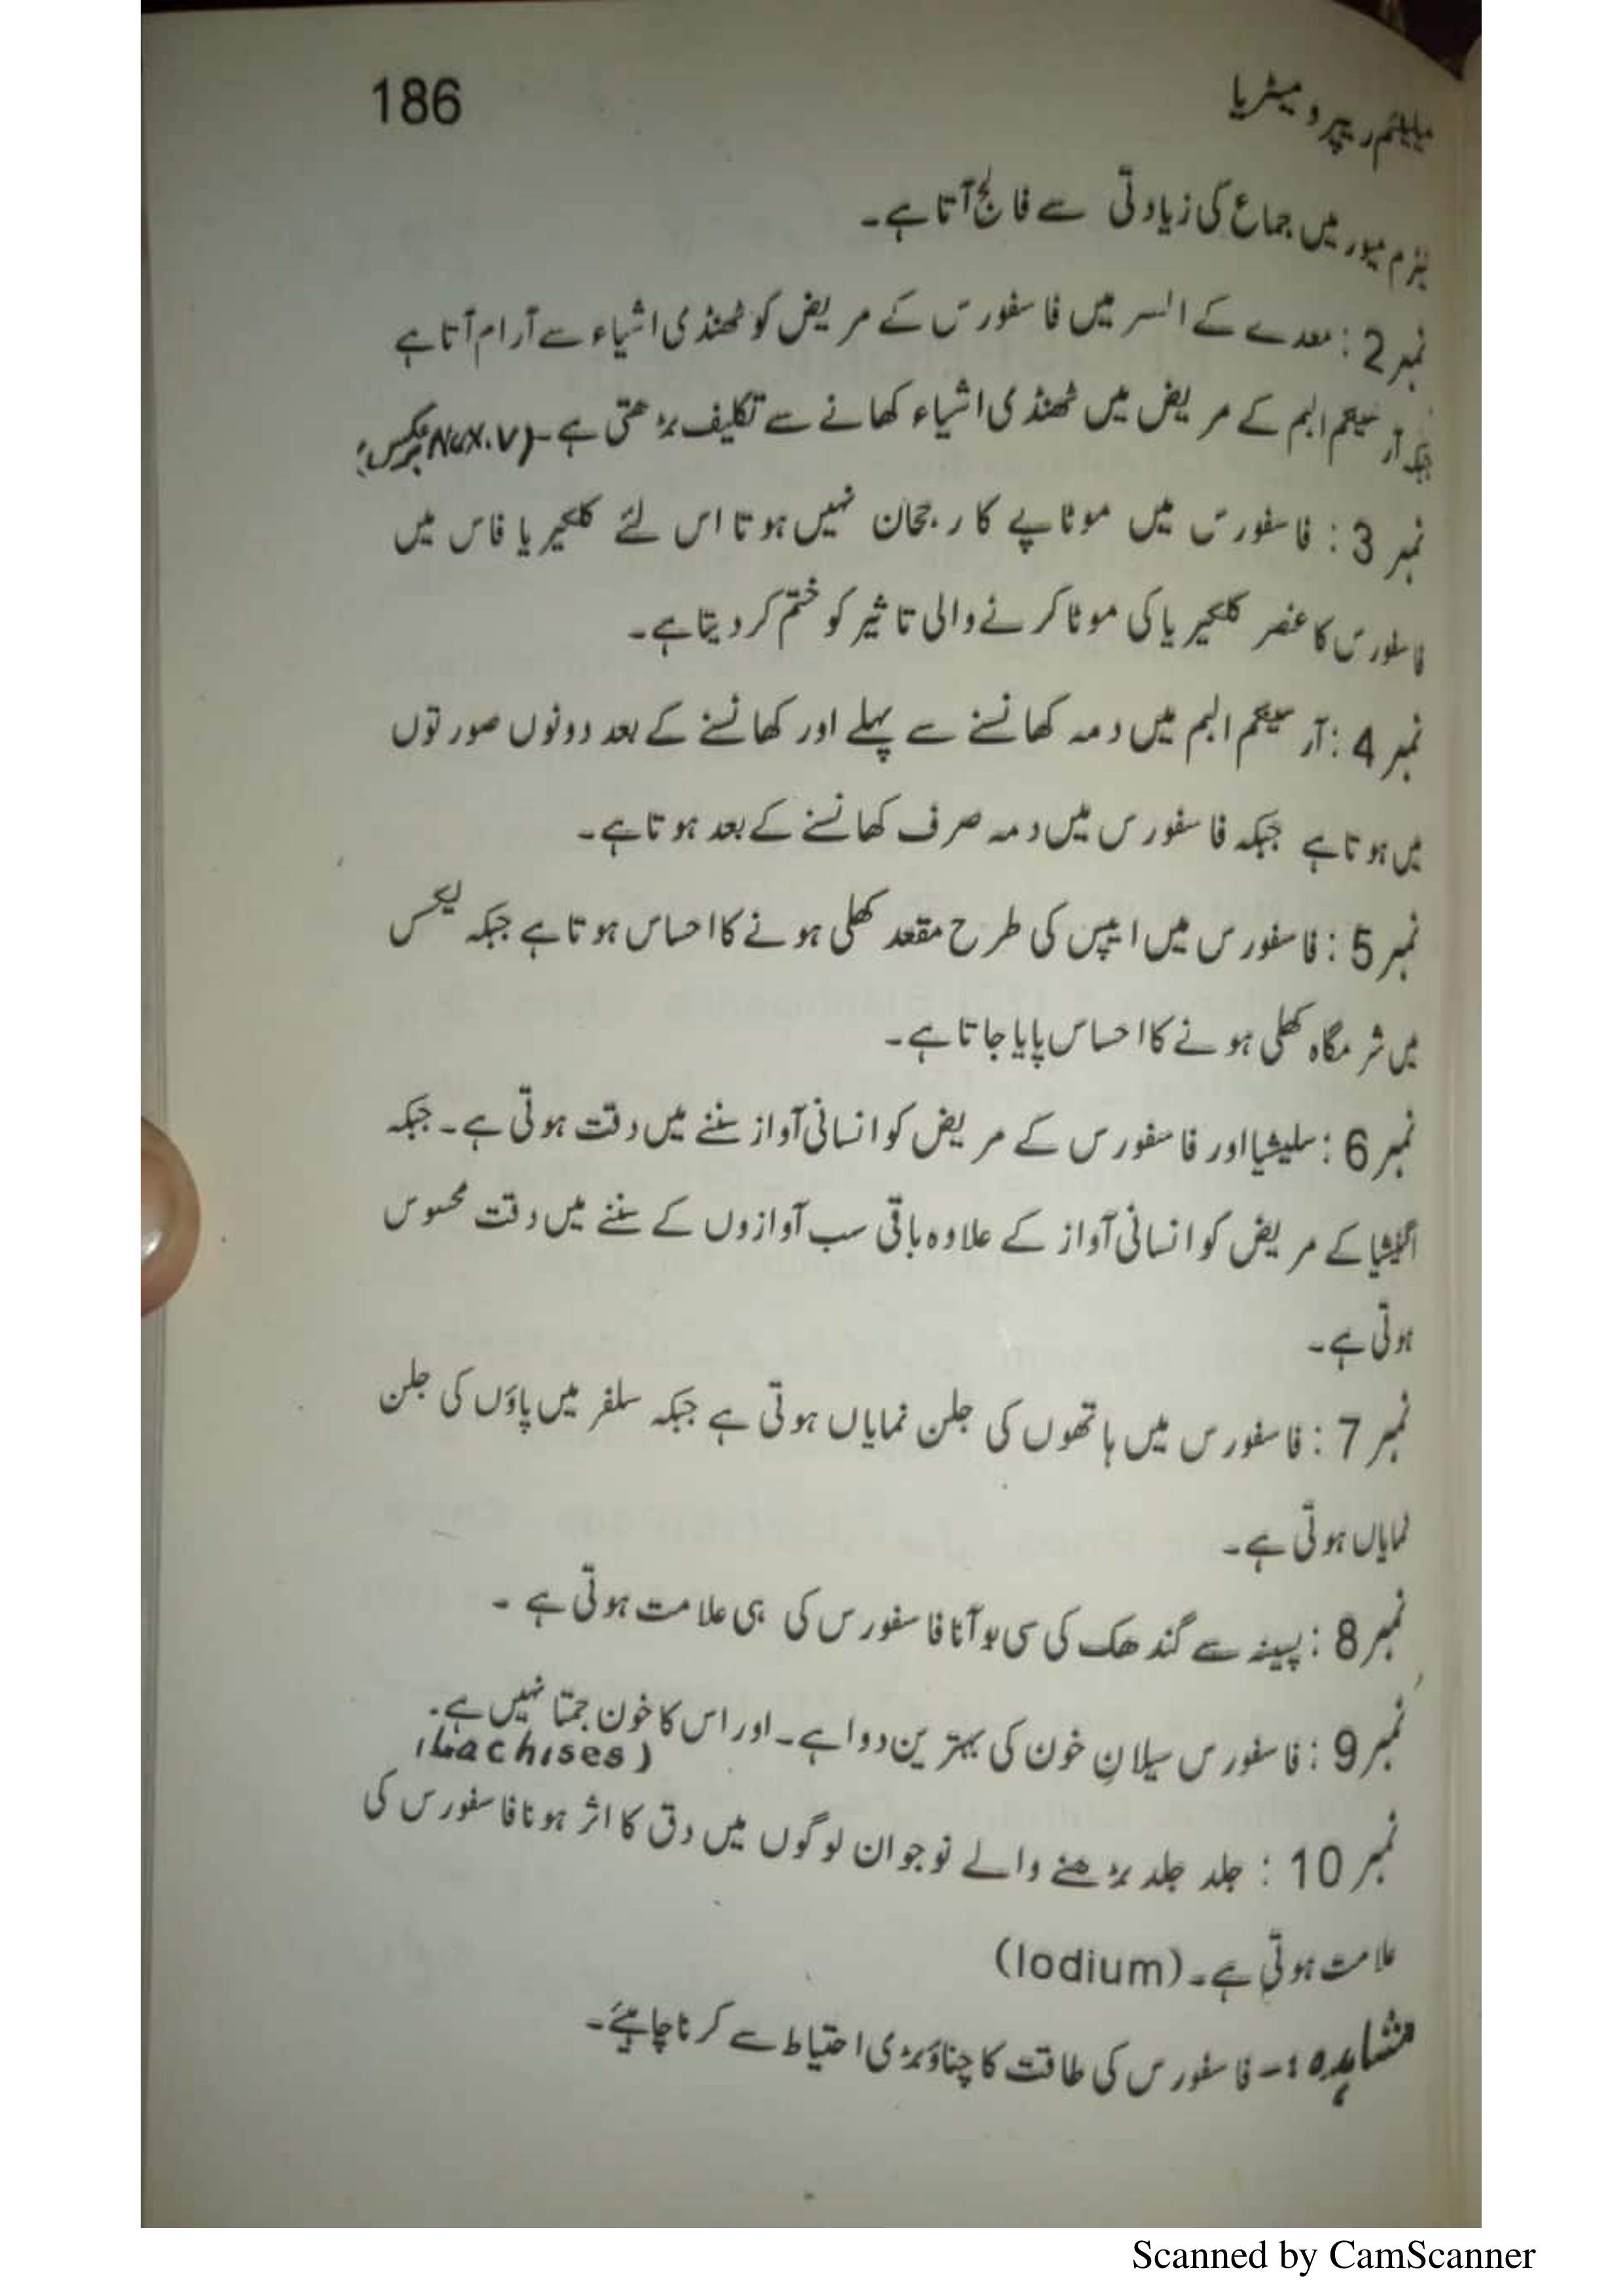 186
و میٹریا
میں جماع کی زیادتی سے فالج آتا ہے۔
نمبر 2 : معدے کے السر میں فاسفورس کے مریض کو ٹھنڈی اشیاء سے آرام آتا ہے
جبکہ آرسینکم البم کے مریض میں ٹھنڈی اشیاء کھانے سے تکلیف بڑھتی ہے۔ (Nux.v برعکس)
نمبر 3 : فاسفورس میں موٹاپے کا رجحان نہیں ہوتا اس لئے کلکیریا فاس میں
فاسفورس کا عنصر کلکیریا کی موٹا کرنے والی تاثیر کو ختم کر دیتا ہے۔
نمبر 4 : آرسینکم البم میں دمہ کھانسنے سے پہلے اور کھانسنے کے بعد دونوں صورتوں
میں ہوتا ہے جبکہ فاسفورس میں دمہ صرف کھانسنے کے بعد ہوتا ہے۔
نمبر 5 : فاسفورس میں ایپس کی طرح مقعد کھلی ہونے کا احساس ہوتا ہے جبکہ
میں شرمگاہ کھلی ہونے کا احساس پایا جاتا ہے۔
نمبر 6 : سلیشیا اور فاسفورس کے مریض کو انسانی آواز سننے میں دقت ہوتی ہے۔ جبکہ
اگنیشیا کے مریض کو انسانی آواز کے علاوہ باقی سب آوازوں کے سننے میں دقت محسوس
ہوتی ہے۔
نمبر 7 : فاسفورس میں ہاتھوں کی جلن نمایاں ہوتی ہے جبکہ سلفر میں پاؤں کی جلن
نمایاں ہوتی ہے۔
نمبر 8 : پسینہ سے گندھک کی سی بو آنا فاسفورس کی ہی علامت ہوتی ہے ۔
نمبر 9 : فاسفورس سیلانِ خون کی بہترین دوا ہے۔ اور اس کا خون جمتا نہیں ہے۔
(Lachises)
نمبر 10 : جلد جلد بڑھنے والے نوجوان لوگوں میں دق کا اثر ہونا فاسفورس کی
علامت ہوتی ہے۔ (Iodium)
مشاہدہ :- فاسفورس کی طاقت کا چناؤ بڑی احتیاط سے کرنا چاہیئے۔
Scanned by CamScanner